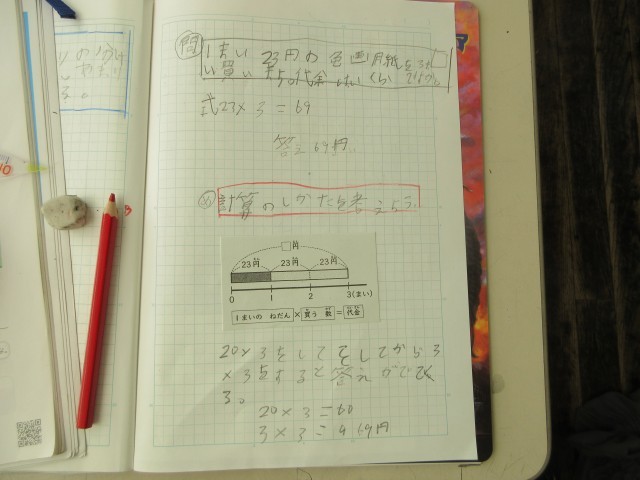 問 1まい23円の色画用紙を3ま
い買いました。代金はいくらですか。
式23×3=69
答え69円
め 計算のしかたを考えよう。
□円
23円 23円 23円
0 1 2 3(まい)
1まいの ねだん × 買う 数 = 代金
20×3をして そしてから3
×3をすると答えがでてく
る。
20×3=60
3×3=9 69円